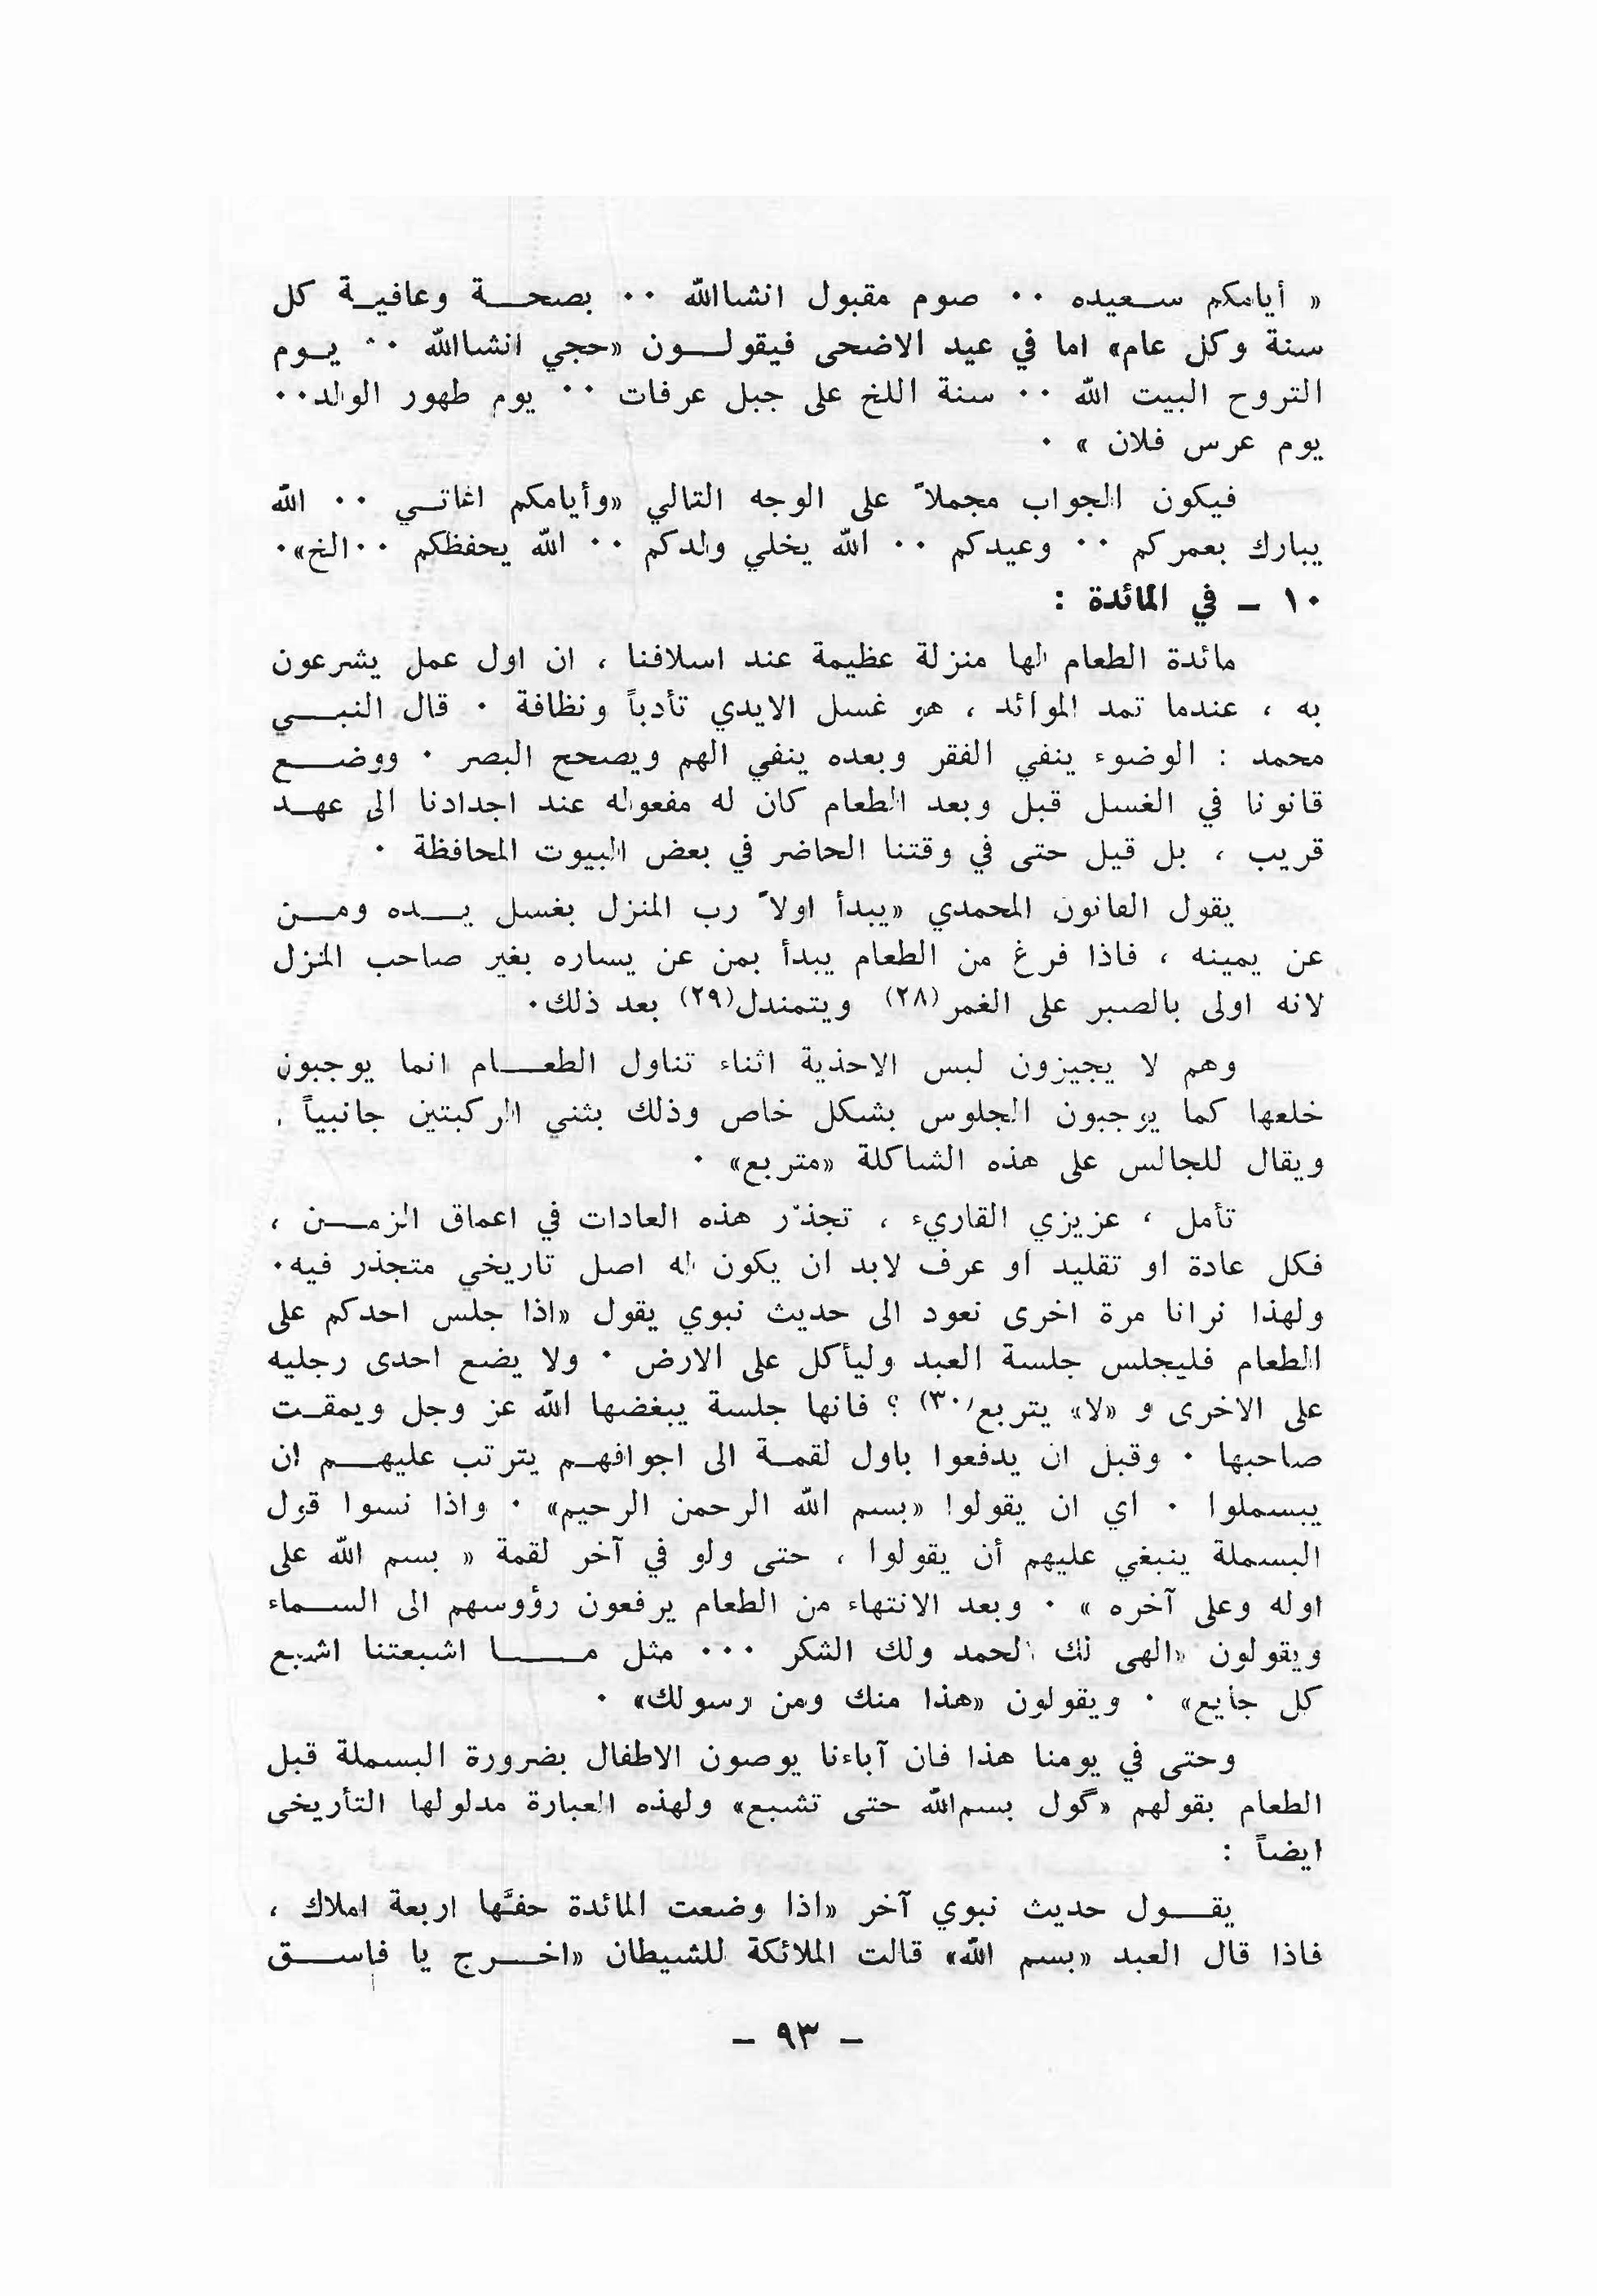 « أيامكم سعيده ٠٠ صوم مقبول انشاالله ٠٠ بصحة وعافية كل
سنة وكل عام» اما في عيد الاضحى فيقولون «حجي انشاالله ٠٠ يوم
التروح البيت الله ٠٠ سنة اللخ على جبل عرفات ٠٠ يوم طهور الوالد٠٠
يوم عرس فلان » ٠
فيكون الجواب مجملاً على الوجه التالي «وأيامكم اغاتي ٠٠ الله
يبارك بعمركم ٠٠ وعيدكم ٠٠ الله يخلي والدكم ٠٠ الله يحفظكم ٠٠الخ»٠
١٠ – في المائدة :
مائدة الطعام لها منزلة عظيمة عند اسلافنا ، ان اول عمل يشرعون
به ، عندما تمد الموائد ، هو غسل الايدي تأدباً ونظافة ٠ قال النبي
محمد : الوضوء ينفي الفقر وبعده ينفي الهم ويصحح البصر ٠ ووضع
قانونا في الغسل قبل وبعد الطعام كان له مفعوله عند اجدادنا الى عهد
قريب ، بل قيل حتى في وقتنا الحاضر في بعض البيوت المحافظة ٠
يقول القانون المحمدي «يبدأ اولاً رب المنزل بغسل يده ومن
عن يمينه ، فاذا فرغ من الطعام يبدأ بمن عن يساره بغير صاحب المنزل
لانه اولى بالصبر على الغمر(٢٨) ويتمندل(٢٩) بعد ذلك٠
وهم لا يجيزون لبس الاحذية اثناء تناول الطعام انما يوجبون
خلعها كما يوجبون الجلوس بشكل خاص وذلك بثني الركبتين جانبياً .
ويقال للجالس على هذه الشاكلة «متربع» ٠
تأمل ، عزيزي القاريء ، تجذّر هذه العادات في اعماق الزمن ،
فكل عادة او تقليد او عرف لابد ان يكون له اصل تاريخي متجذر فيه٠
ولهذا نرانا مرة اخرى نعود الى حديث نبوي يقول «اذا جلس احدكم على
الطعام فليجلس جلسة العبد وليأكل على الارض ٠ ولا يضع احدى رجليه
على الاخرى و «لا» يتربع(٣٠) ؟ فانها جلسة يبغضها الله عز وجل ويمقت
صاحبها ٠ وقبل ان يدفعوا باول لقمة الى اجوافهم يترتب عليهم ان
يبسملوا ٠ اي ان يقولوا «بسم الله الرحمن الرحيم» ٠ واذا نسوا قول
البسملة ينبغي عليهم أن يقولوا ، حتى ولو في آخر لقمة « بسم الله على
اوله وعلى آخره » ٠ وبعد الانتهاء من الطعام يرفعون رؤوسهم الى السماء
ويقولون «الهى لك الحمد ولك الشكر ٠٠٠ مثل ما اشبعتنا اشبع
كل جايع» ٠ ويقولون «هذا منك ومن رسولك» ٠
وحتى في يومنا هذا فان آباءنا يوصون الاطفال بضرورة البسملة قبل
الطعام بقولهم «گول بسم‌الله حتى تشبع» ولهذه العبارة مدلولها التأريخى
ايضاً :
يقول حديث نبوي آخر «اذا وضعت المائدة حفّها اربعة املاك ،
فاذا قال العبد «بسم الله» قالت الملائكة للشيطان «اخرج يا فاسق
– ٩٣ –